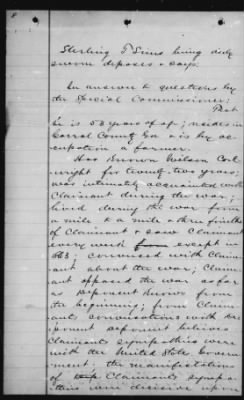 Sterling T Sims being duly
sworn deposes & says.
In answer to questions by
the Special Commissioner:
That
he is 53 years of age; resides in
Carroll County Ga & is by oc-
cupation a farmer.
Has known Wilson
wright for twenty two years;
was intimately acquainted with
Claimant during the war;
lived during the war, from
a mile to a mile & three fourths
of Claimant & saw Claimant
every week except in
1863; conversed with Claim-
ant about the war; Claim-
ant opposed the war as far
as deponent knows from
the beginning; from Claim-
ants conversations with de-
ponent deponent believes
Claimants sympathies were
with the United States Govern-
ment; the manifestations
of Claimants sympa-
thies were decisive upon